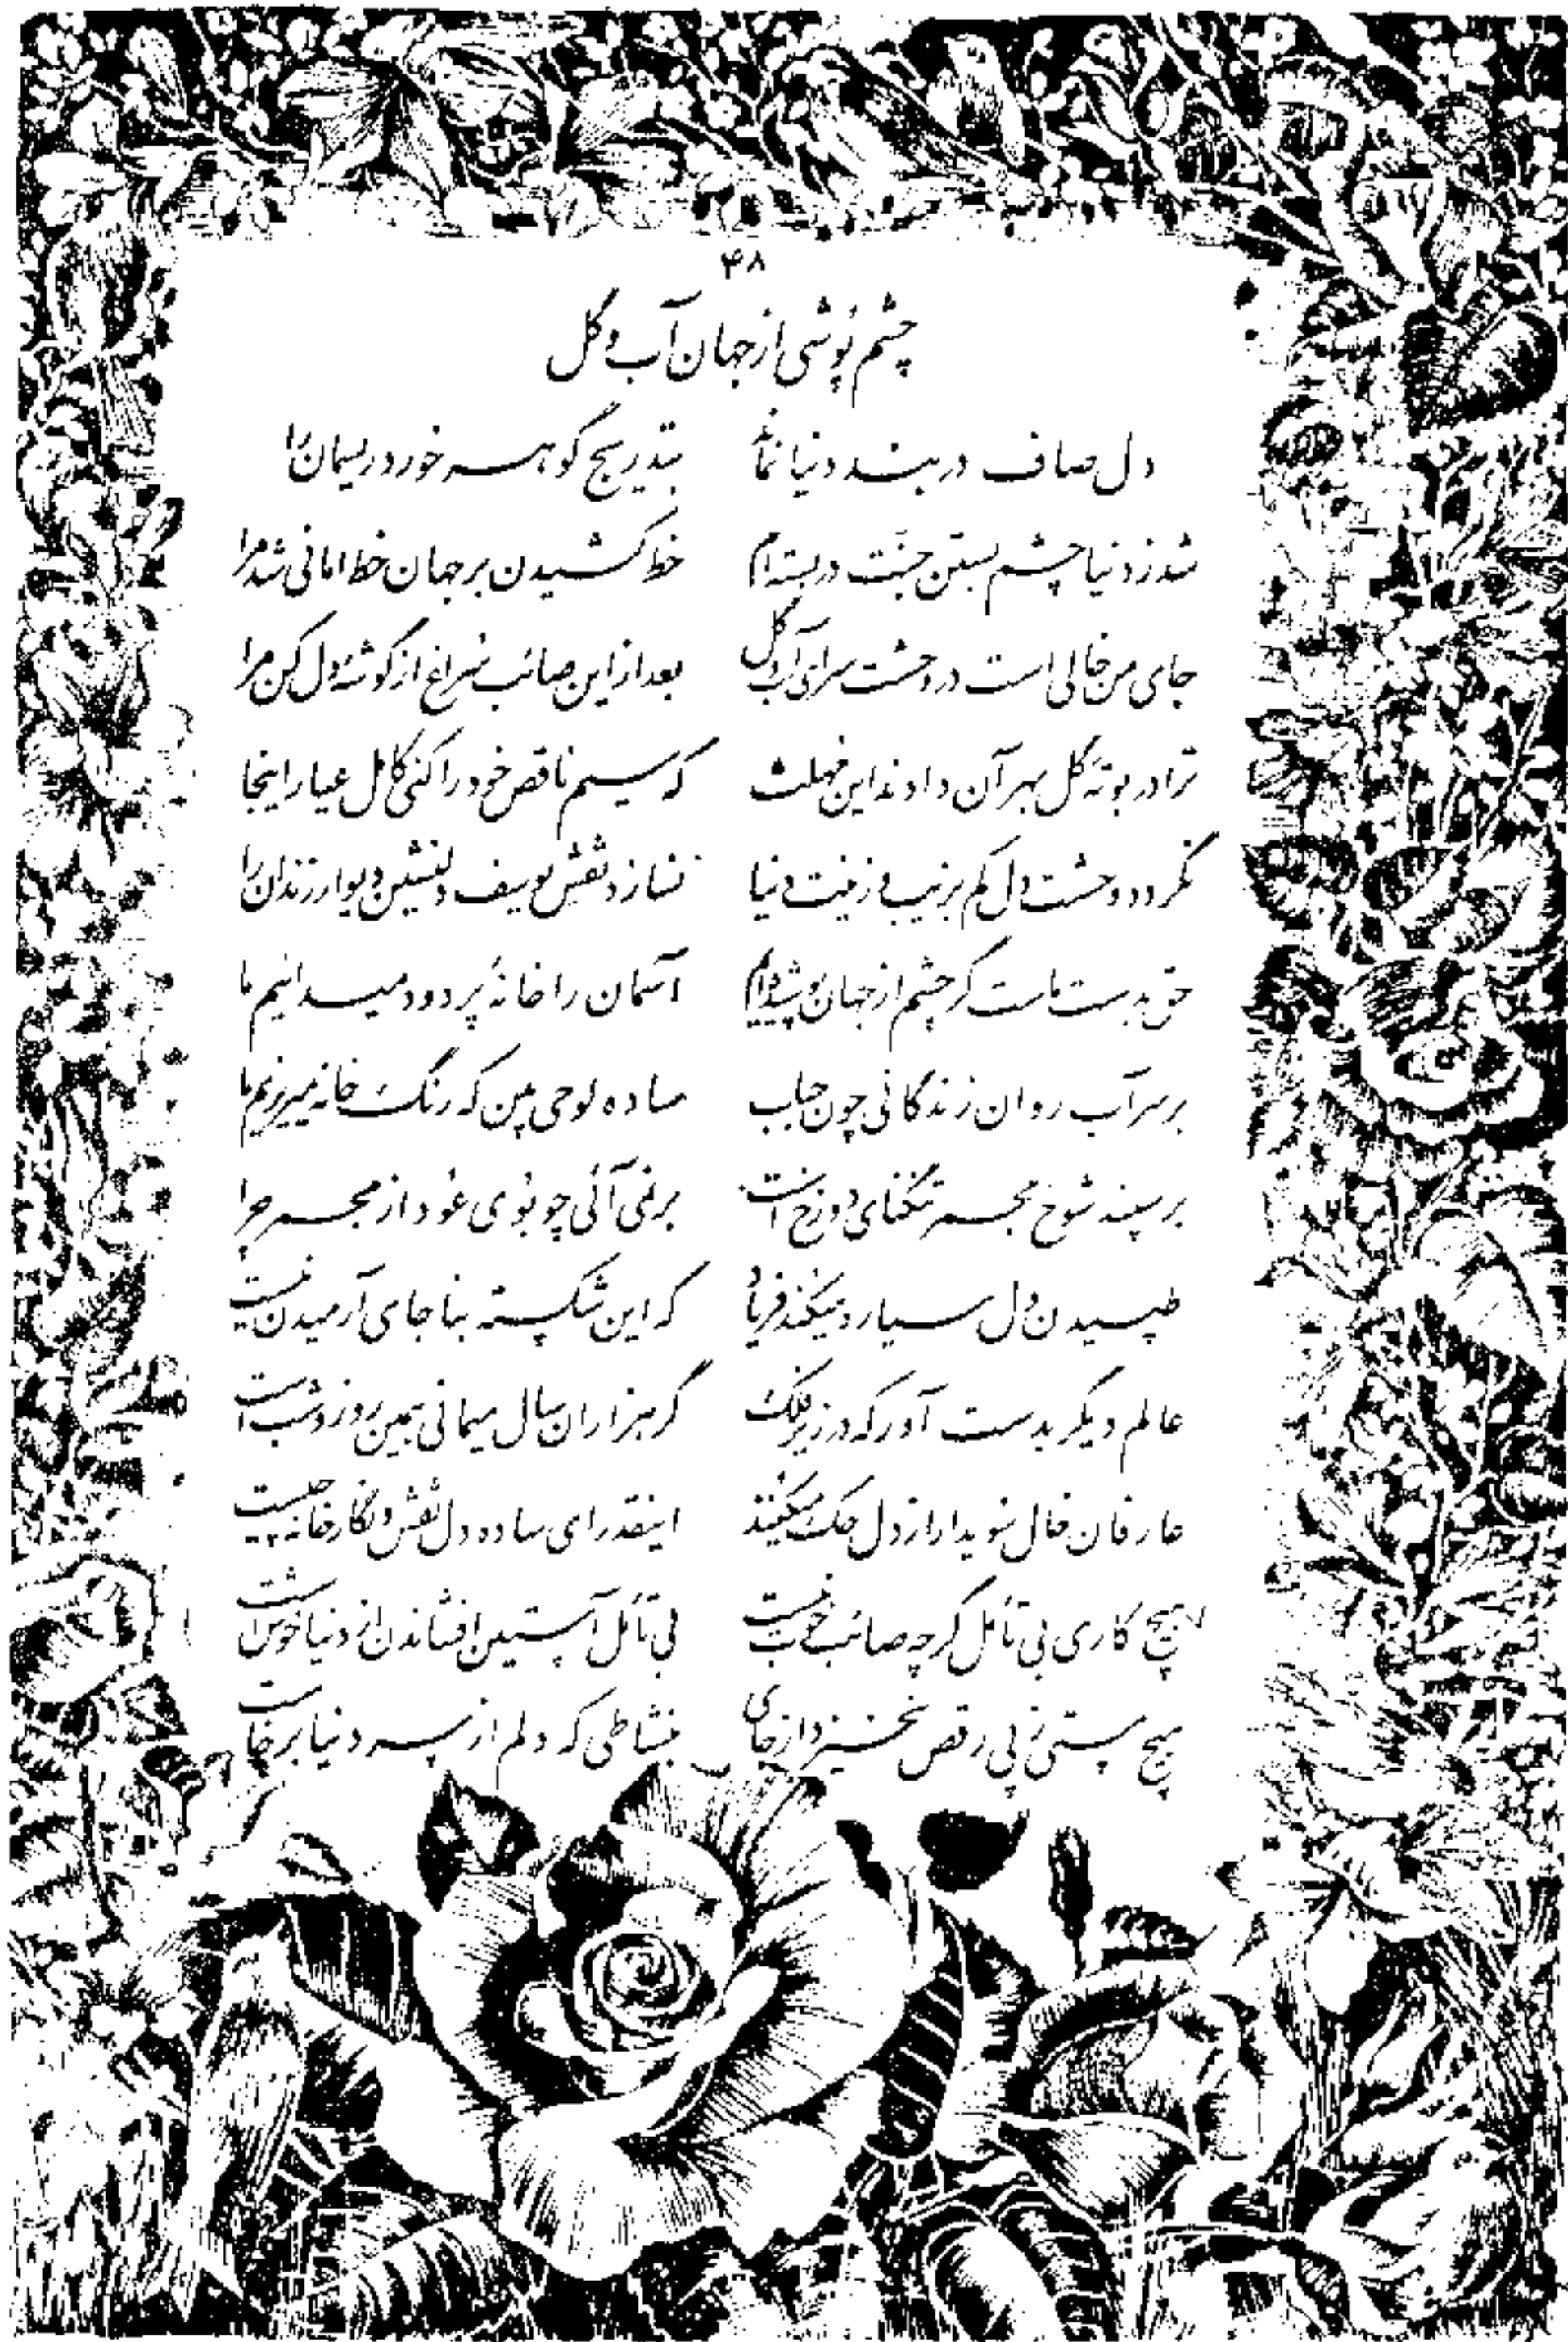 ۴۸
چشم پوشی از جهان آب و گل
دل صاف در بند دنیا نماند بتدریج گوهر خورد ریسمان را
شد ز دنیا چشم بستن جنت در بسته‌ام خط کشیدن بر جهان خط امانی شد مرا
جای من خالی است در وحشت سرای آب و گل بعد از این صائب سراغ از گوشهٔ دل کن مرا
ترا در بوتهٔ گل بهر آن دادند این مهلت که سیم ناقص خود را کنی کامل عیار اینجا
نگردد وحشت دل کم بزیب و زینت دنیا نسازد نقش یوسف دلنشین دیوار زندان را
حق بدست ماست گر چشم از جهان پوشیده‌ایم آسمان را خانهٔ پر دود میدانیم ما
بر سر آب روان زندگانی چون حباب ساده لوحی بین که رنگ خانه میریزیم ما
بر سپند شوخ مجمر تنگنای دوزخ است برنمی‌آئی چو بوی عود از مجمر چرا
طپیدن دل سیاره میکند فریاد که این شکسته بنا جای آرمیدن نیست
عالم دیگر بدست آور که در زیر فلک گر هزاران سال میمانی همین روز و شب است
عارفان خال سویدا را ز دل حک میکنند اینقدر ای ساده دل نقش و نگار خانه چیست
هیچ کاری بی تأمل گرچه صائب خوب نیست بی تأمل آستین افشاندن از دنیا خوش است
هیچ مستی ز پی رقص نخیزد از جای بنشاطی که دلم از سر دنیا برخاست